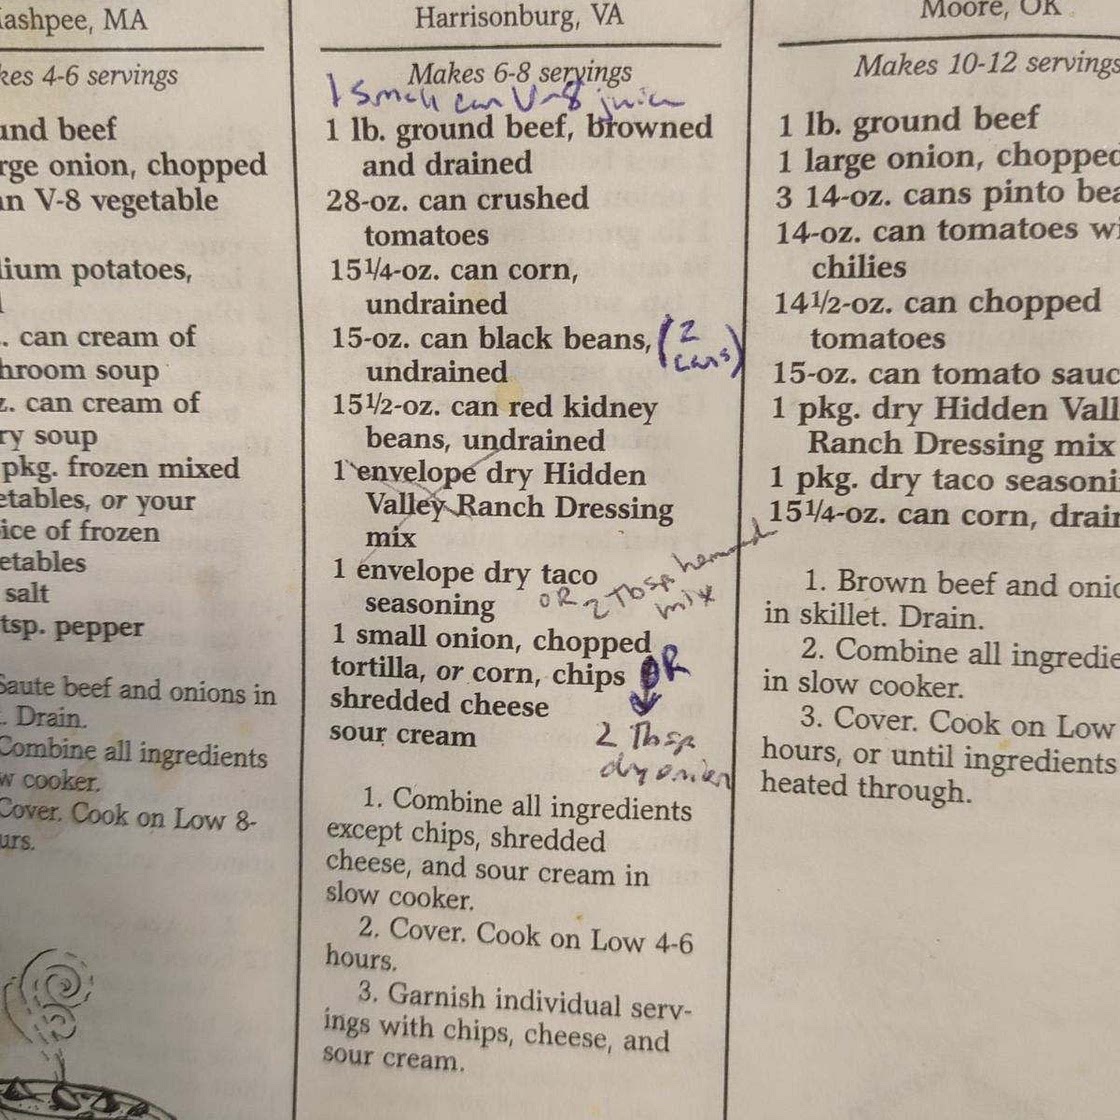 ashpee, MA
kes 4-6 servings
und beef
rge onion, chopped
an V-8 vegetable
lium potatoes,
. can cream of
hroom soup
z. can cream of
ry soup
pkg. frozen mixed
etables, or your
ice of frozen
etables
salt
tsp. pepper
Saute beef and onions in
. Drain.
Combine all ingredients
w cooker.
Cover. Cook on Low 8-
urs.
Harrisonburg, VA
Makes 6-8 servings
1 Small can V-8 juice
1 lb. ground beef, browned
and drained
28-oz. can crushed
tomatoes
15¼-oz. can corn,
undrained
15-oz. can black beans, (2
undrained cans)
15½-oz. can red kidney
beans, undrained
1 envelope dry Hidden
Valley Ranch Dressing
mix
1 envelope dry taco
seasoning OR 2 Tbsp homemade
mix
1 small onion, chopped
tortilla, or corn, chips OR
shredded cheese
sour cream 2 Tbsp
dry onion
1. Combine all ingredients
except chips, shredded
cheese, and sour cream in
slow cooker.
2. Cover. Cook on Low 4-6
hours.
3. Garnish individual serv-
ings with chips, cheese, and
sour cream.
Moore, OK
Makes 10-12 servings
1 lb. ground beef
1 large onion, chopped
3 14-oz. cans pinto bea
14-oz. can tomatoes wi
chilies
14½-oz. can chopped
tomatoes
15-oz. can tomato sauc
1 pkg. dry Hidden Vall
Ranch Dressing mix
1 pkg. dry taco seasoni
15¼-oz. can corn, drain
1. Brown beef and onio
in skillet. Drain.
2. Combine all ingredie
in slow cooker.
3. Cover. Cook on Low
hours, or until ingredients
heated through.